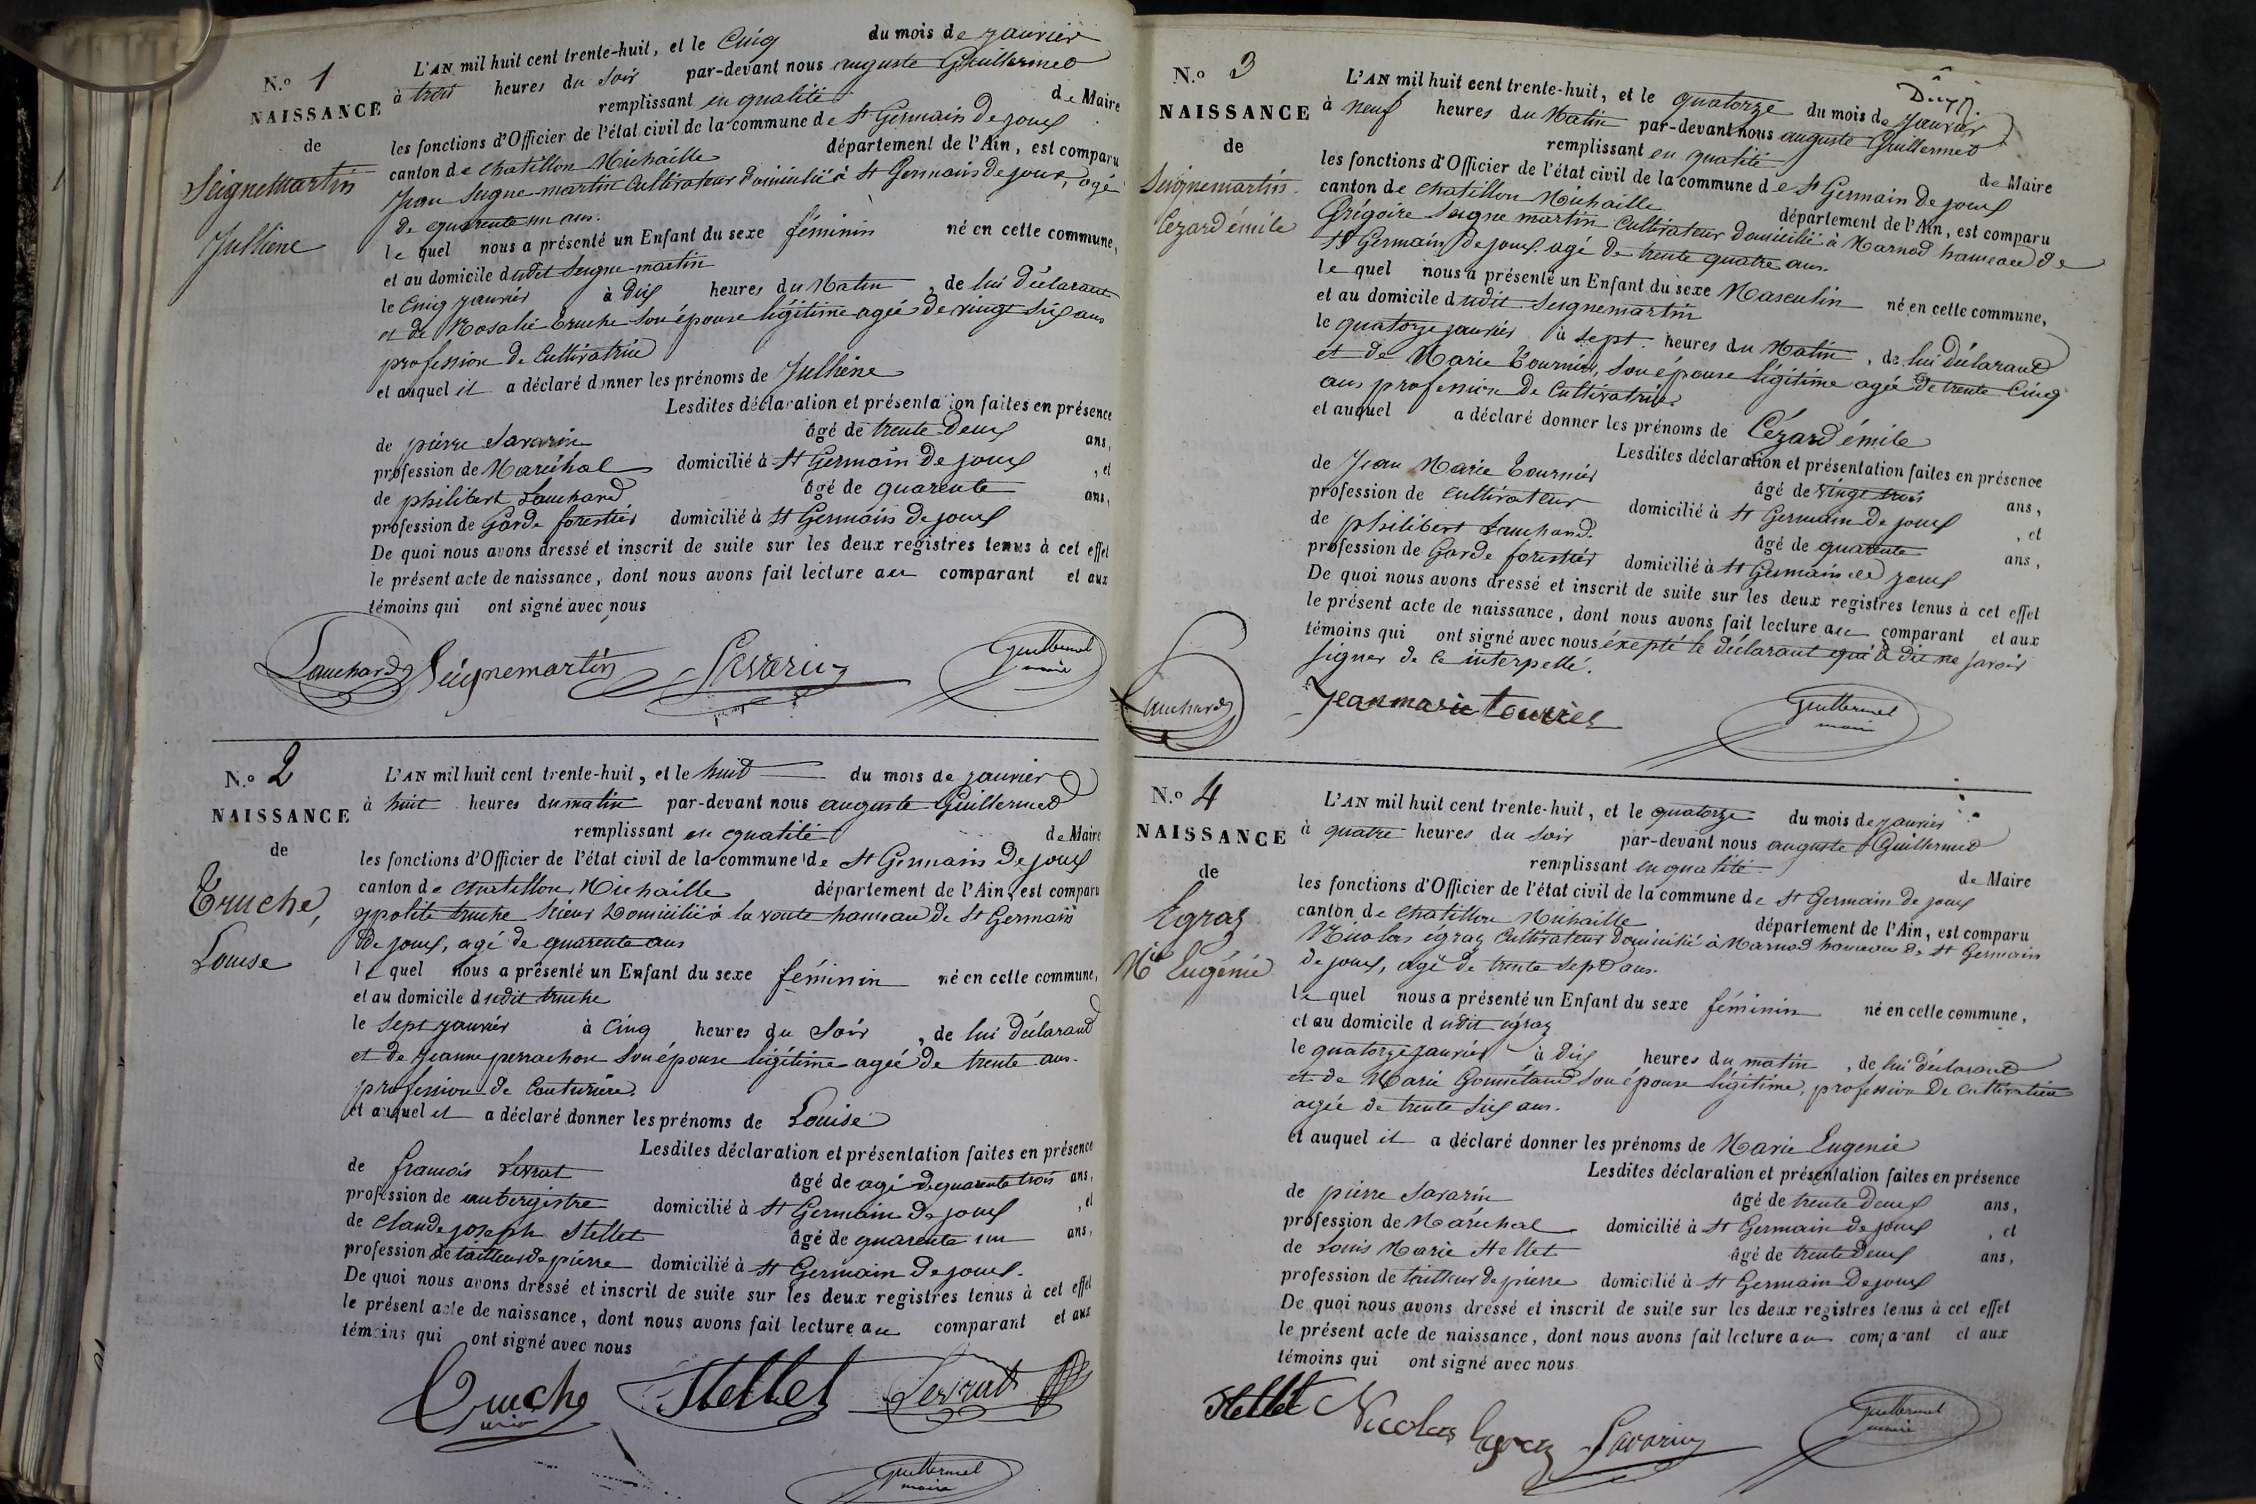 N.o 1
NAISSANCE
de
Seignemartin
Julliene
L'AN mil huit cent trente-huit, et le Cinq du mois de janvier
à trois heures du Soir par-devant nous auguste Guillermet
remplissant en qualité de Maire
les fonctions d'Officier de l'état civil de la commune de St Germain de joux
canton de chatillon Michaille département de l'Ain, est comparu
Jean Seigne-martin Cultivateur domicilié à St Germain de joux, agé
de quarente un ans.
le quel nous a présenté un Enfant du sexe féminin né en cette commune,
et au domicile dudit Seigne-martin
le Cinq janvier à Dix heures du Matin, de lui déclarant
et de Rosalie Truche son épouse légitime agée de vingt six ans
profession de Cultivatrice
et auquel il a déclaré donner les prénoms de Julliene
Lesdites déclaration et présentation faites en présence
de pierre Savarin âgé de trente Deux ans,
profession de Maréchal domicilié à St Germain de joux, et
de philibert Lauchard âgé de quarente ans,
profession de Garde forestier domicilié à St Germain de joux
De quoi nous avons dressé et inscrit de suite sur les deux registres tenus à cet effet
le présent acte de naissance, dont nous avons fait lecture au comparant et aux
témoins qui ont signé avec nous
Lauchard Seignemartin Savarin Guillermet
maire
N.o 2
NAISSANCE
de
Truche,
Louise
L'AN mil huit cent trente-huit, et le huit du mois de janvier
à huit heures du matin par-devant nous auguste Guillermet
remplissant en qualité de Maire
les fonctions d'Officier de l'état civil de la commune de St Germain de joux
canton de chatillon Michaille département de l'Ain, est comparu
ypolite truche Scieur Domicilié à la voute hameau de St Germain
de joux, agé de quarente ans
le quel nous a présenté un Enfant du sexe féminin né en cette commune,
et au domicile dudit truche
le Sept janvier à Cinq heures du Soir, de lui déclarant
et de Jeanne perrachon son épouse légitime agée de trente ans.
profession de Couturière.
et auquel il a déclaré donner les prénoms de Louise
Lesdites déclaration et présentation faites en présence
de françois Levrat âgé de agé de quarente trois ans,
profession de aubergistre domicilié à St Germain de joux, et
de Claude joseph Stellet âgé de quarente un ans,
profession de tailleur de pierre domicilié à St Germain de joux.
De quoi nous avons dressé et inscrit de suite sur les deux registres tenus à cet effet
le présent acte de naissance, dont nous avons fait lecture au comparant et aux
témoins qui ont signé avec nous
Truche Stellet Levrat
Guillermet
maire
N.o 3
NAISSANCE
de
Seignemartin
Cézard émile
L'AN mil huit cent trente-huit, et le quatorze du mois de janvier
à neuf heures du Matin par-devant nous auguste Guillermet
remplissant en qualité de Maire
les fonctions d'Officier de l'état civil de la commune de St Germain de joux
canton de chatillon Michaille département de l'Ain, est comparu
Grégoire Seigne martin Cultivateur domicilié à Marnod hameau de
St Germain de joux agé de trente quatre ans.
le quel nous a présenté un Enfant du sexe Masculin né en cette commune,
et au domicile dudit Seignemartin
le quatorze janvier à sept heures du Matin, de lui déclarant
et de Marie Tournier, son épouse légitime agée de trente Cinq
ans profession de Cultivatrice.
et auquel a déclaré donner les prénoms de Cézard émile
Lesdites déclaration et présentation faites en présence
de Jean Marie Tournier âgé de vingt trois ans,
profession de cultivateur domicilié à St Germain de joux, et
de philibert Lauchard. âgé de quarente ans,
profession de Garde forestier domicilié à St Germain de joux
De quoi nous avons dressé et inscrit de suite sur les deux registres tenus à cet effet
le présent acte de naissance, dont nous avons fait lecture au comparant et aux
témoins qui ont signé avec nous éxepté le déclarant qui à dit ne savoir
signer de ce interpellé.
Lauchard Jean marie tournier Guillermet
maire
N.o 4
NAISSANCE
de
Egraz
Mie Eugénie
L'AN mil huit cent trente-huit, et le quatorze du mois de janvier
à quatre heures du Soir par-devant nous auguste Guillermet
remplissant en qualité de Maire
les fonctions d'Officier de l'état civil de la commune de St Germain de joux
canton de Chatillon Michaille département de l'Ain, est comparu
Nicolas égraz Cultivateur domicilié à Marnod hameau de St Germain
de joux, agé de trente sept ans.
le quel nous a présenté un Enfant du sexe féminin né en cette commune,
et au domicile dudit égraz
le quatorze janvier à dix heures du matin, de lui déclarant
et de Marie son épouse légitime, profession de Cultivatrice
agée de trente six ans.
et auquel il a déclaré donner les prénoms de Marie Eugenie
Lesdites déclaration et présentation faites en présence
de pierre Savarin âgé de trente Deux ans,
profession de Maréchal domicilié à St Germain de joux, et
de Louis Marie Stellet âgé de trente Deux ans,
profession de tailleur de pierre domicilié à St Germain de joux
De quoi nous avons dressé et inscrit de suite sur les deux registres tenus à cet effet
le présent acte de naissance, dont nous avons fait lecture au comparant et aux
témoins qui ont signé avec nous
Stellet Nicolas Egraz Savarin Guillermet
maire